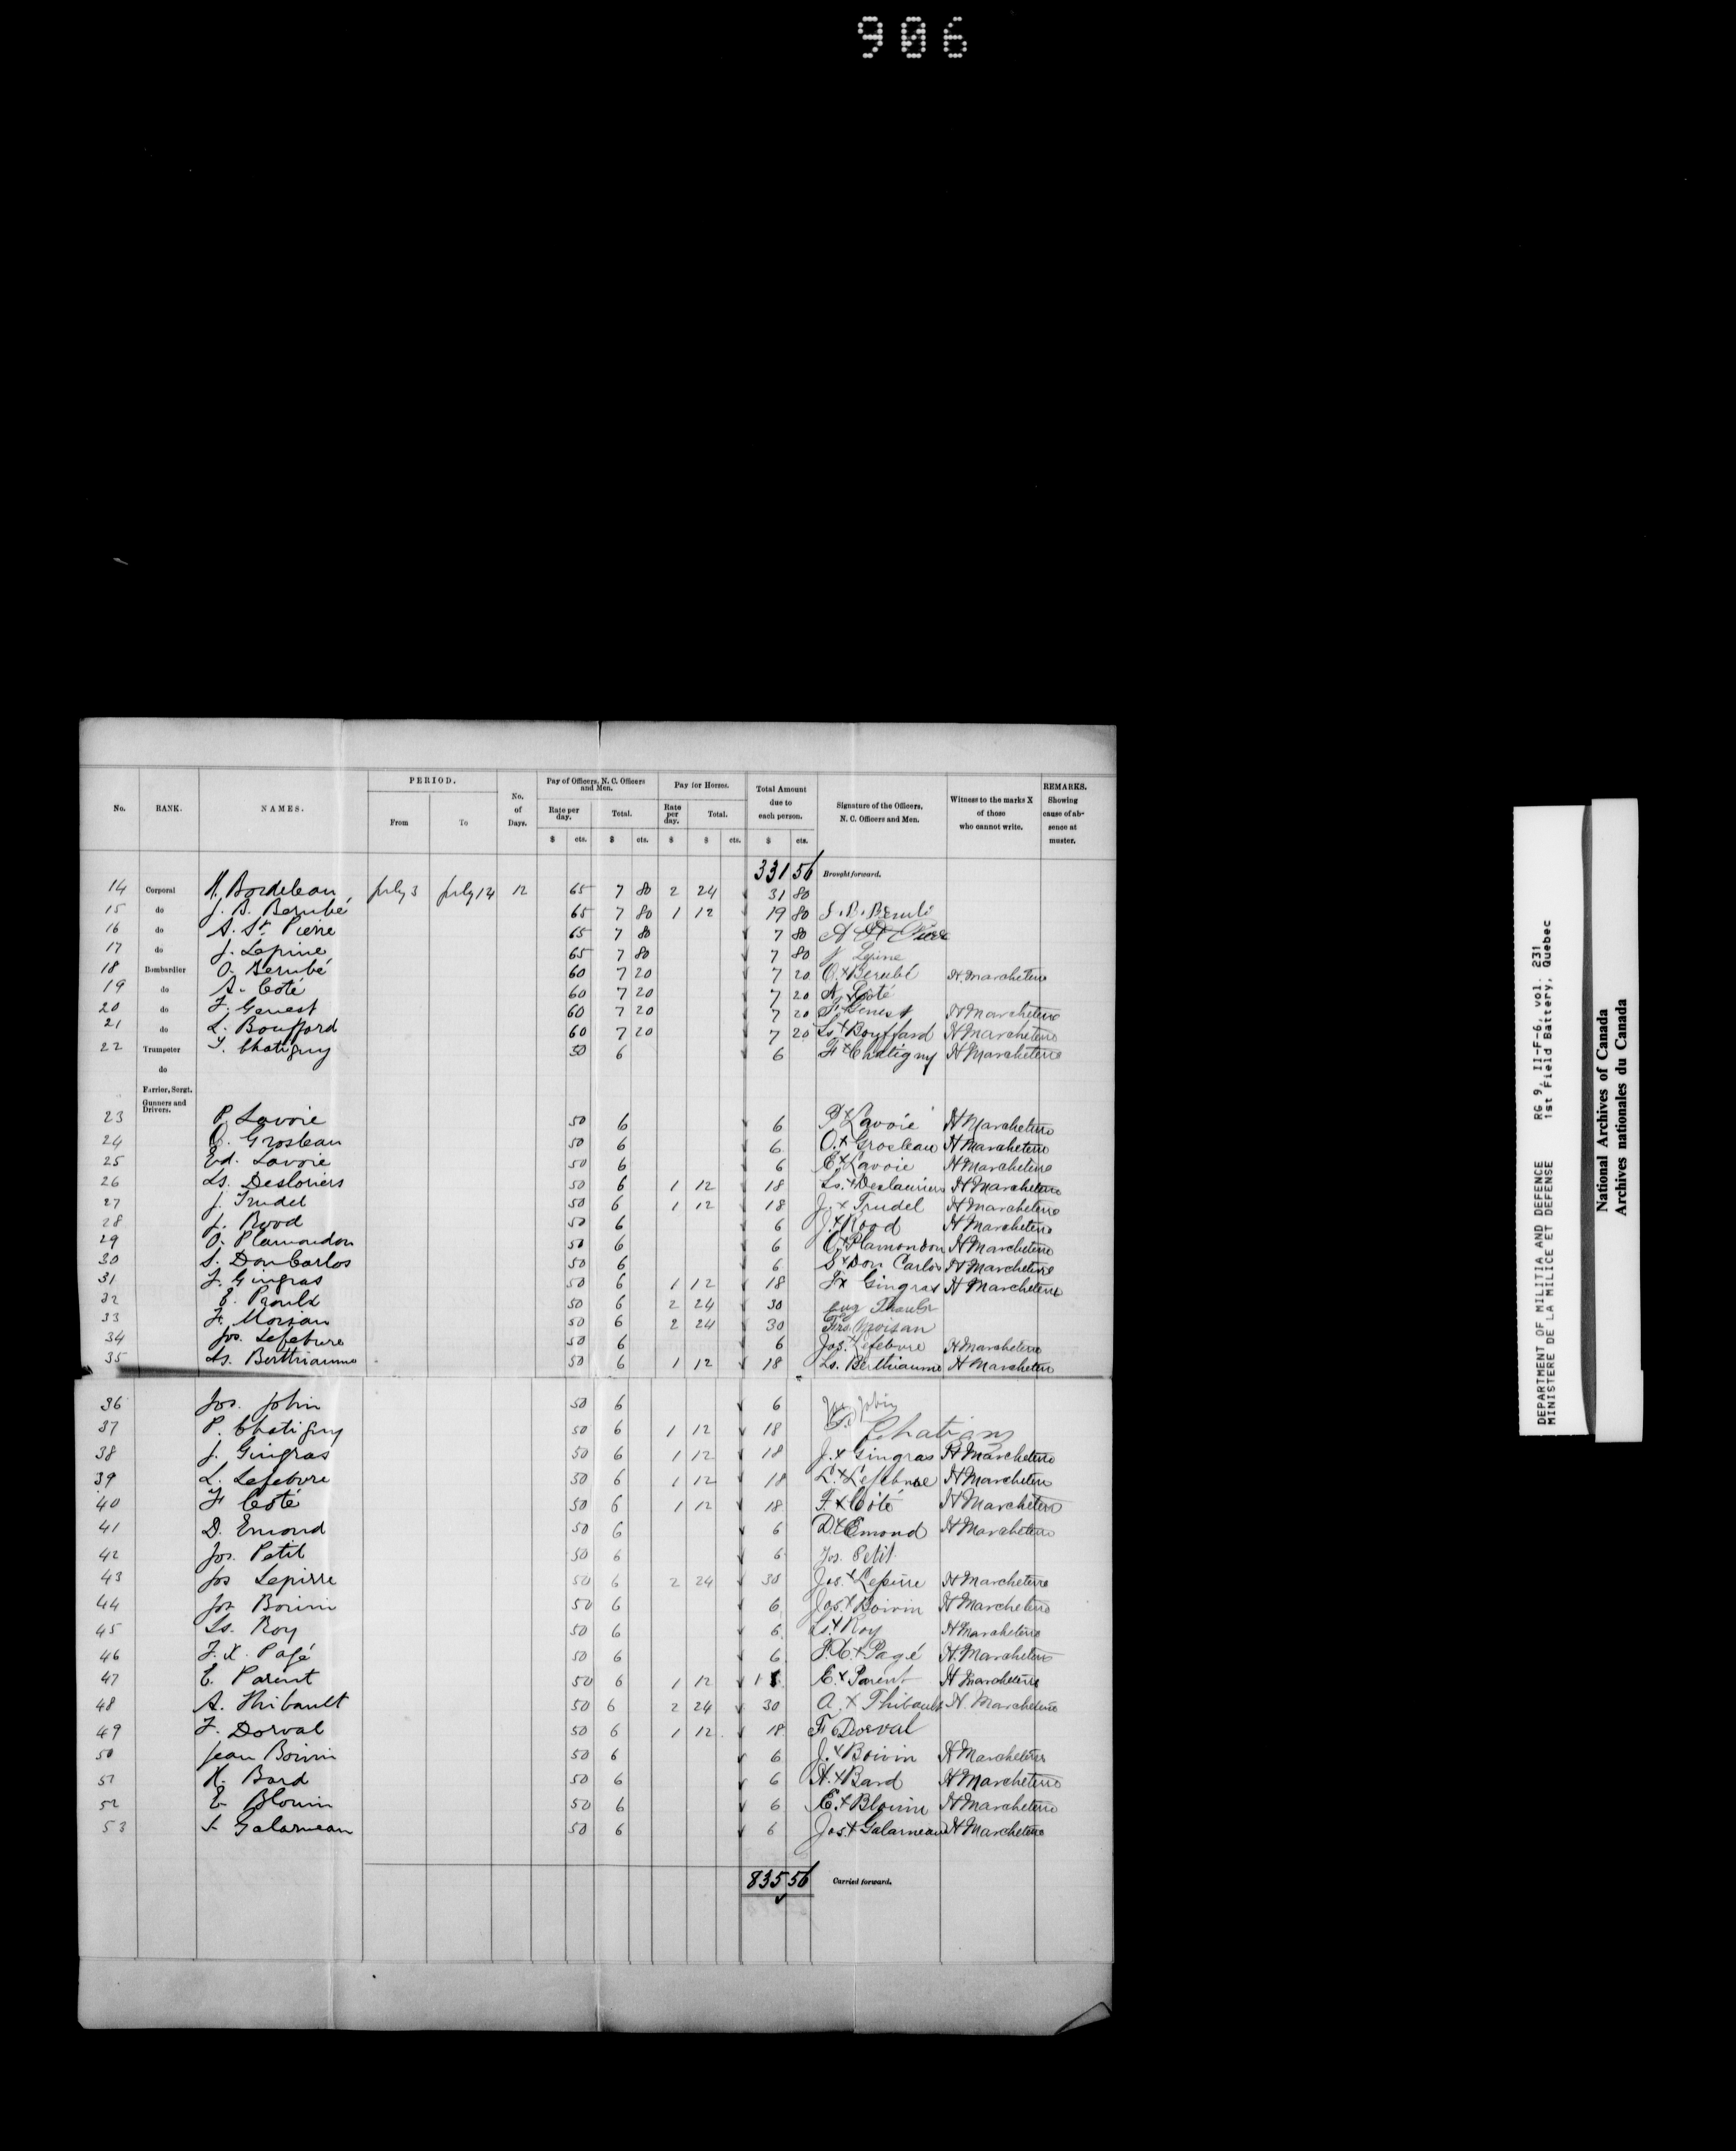 906
PERIOD. Pay of Officers, N. C. Officers and Men. Pay for Horses. Total Amount due to each person. REMARKS. Showing cause of absence at muster.
No. RANK. NAMES. From To No. of Days. Rate per day. Total. Rate per day. Total. Signature of the Officers, N. C. Officers and Men. Witness to the marks X of those who cannot write.
$ cts. $ cts. $ $ cts. $ cts.
331 56 Brought forward.
14 Corporal H. Bordeleau, July 3 July 14 12 65 7 80 2 24 31 80
15 do J. B. Berubé 65 7 80 1 12 19 80 J. B. Berubé
16 do A. St. Pierre 65 7 80 7 80 A St Pierre
17 do J. Lepine 65 7 80 7 80 J Lepine
18 Bombardier O. Berubé 60 7 20 7 20 O. x Berubé H. Marcheterre
19 do A. Coté 60 7 20 7 20 A, Coté
20 do F. Genest 60 7 20 7 20 F. Genest H Marcheterre
21 do L. Bouffard 60 7 20 7 20 Ls x Bouffard H Marcheterre
22 Trumpeter F. Chatigny 50 6 6 F x Chatigny H Marcheterre
do
Farrier, Sergt.
Gunners and Drivers.
23 P. Lavoie 50 6 6 P x Lavoie H Marcheterre
24 O. Grosleau 50 6 6 O. x Grosleau H Marcheterre
25 Ed. Lavoie 50 6 6 E x Lavoie H Marcheterre
26 Ls. Desloriers 50 6 1 12 18 Ls. x Deslauriers H Marcheterre
27 J. Trudel 50 6 1 12 18 J. x Trudel H Marcheterre
28 J. Rood 50 6 6 J. x Rood H Marcheterre
29 O. Plamondon 50 6 6 O x Plamondon H Marcheterre
30 S. Don Carlos 50 6 6 S x Don Carlos H Marcheterre
31 F. Gingras 50 6 1 12 18 F x Gingras H Marcheterre
32 E. Proulx 50 6 2 24 30 Eug
33 F. Moisan 50 6 2 24 30 Frs Moisan
34 Jos. Lefebvre 50 6 6 Jos. x Lefebvre H Marcheterre
35 Ls. Berthiaume 50 6 1 12 18 Ls. Berthiaume H Marcheterre
36 Jos. Jobin 50 6 6 Jos Jobin
37 P. Chatigny 50 6 1 12 18 Chatigny
38 J. Gingras 50 6 1 12 18 J. x Gingras H Marcheterre
39 L. Lefebvre 50 6 1 12 18 L. x Lefebvre H Marcheterre
40 F Coté 50 6 1 12 18 F. x Côté H Marcheterre
41 D. Emond 50 6 6 D. x Emond H Marcheterre
42 Jos. Petit 50 6 6 Jos. Petit
43 Jos Lepirre 50 6 2 24 30 Jos. x Lepirre H Marcheterre
44 Jos Boivin 50 6 6 Jos. x Boivin H Marcheterre
45 Ls. Roy 50 6 6 Ls. x Roy H Marcheterre
46 F. X. Pagé 50 6 6 F.X. x Pagé H. Marcheterre
47 E. Parent 50 6 1 12 18 E. x Parent H Marcheterre
48 A. Thibault 50 6 2 24 30 A. x Thibault H. Marcheterre
49 F. Dorval 50 6 1 12 18 F Dorval
50 Jean Boivin 50 6 6 J. x Boivin H Marcheterre
51 H. Bard 50 6 6 H. x Bard H Marcheterre
52 E Blouin 50 6 6 E. x Blouin H Marcheterre
53 J. Galarneau 50 6 6 Jos. x Galarneau H Marcheterre
835 56 Carried forward.
DEPARTMENT OF MILITIA AND DEFENCE RG 9, II-F-6, vol. 231
MINISTERE DE LA MILICE ET DEFENSE 1st Field Battery, Quebec
National Archives of Canada
Archives nationales du Canada